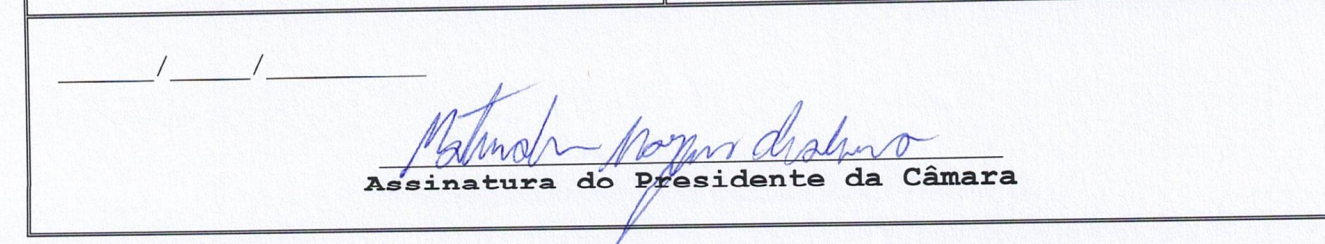 ____/____/________
Assinatura do Presidente da Câmara